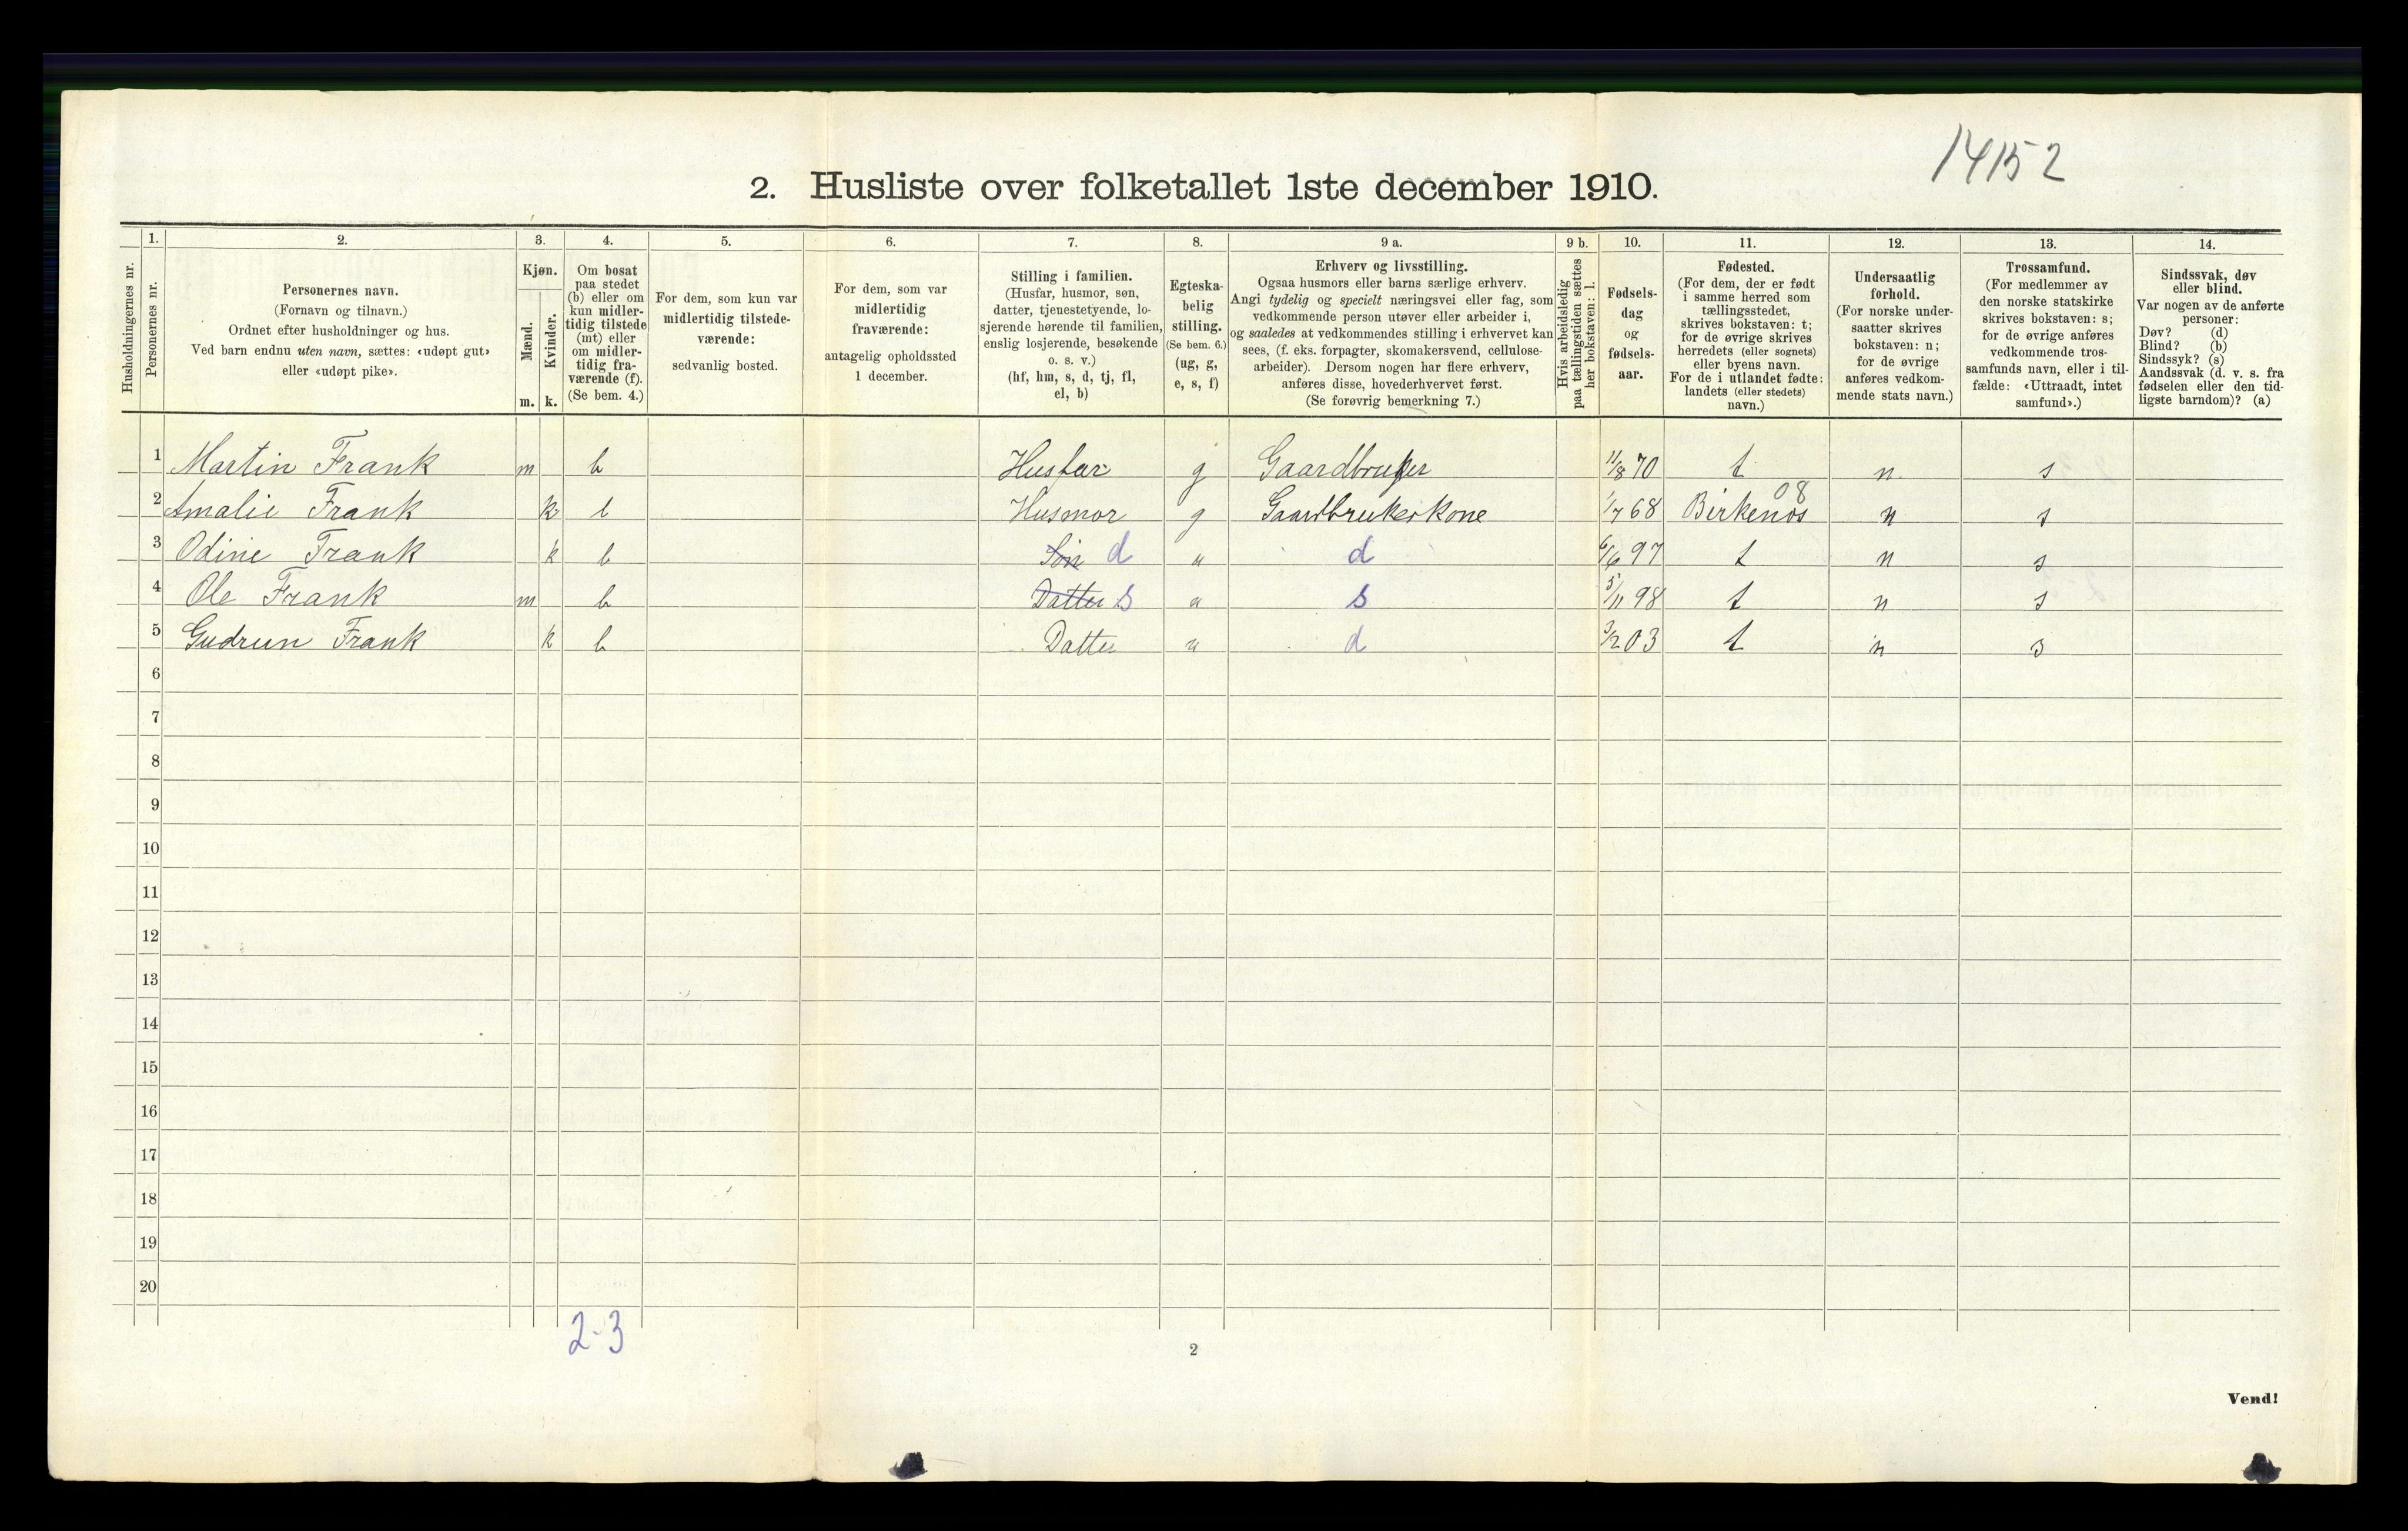 14152
2. Husliste over folketallet 1ste december 1910.
Husholdningernes nr.
1. Personernes nr.
2. Personernes navn.
(Fornavn og tilnavn.)
Ordnet efter husholdninger og hus.
Ved barn endnu uten navn, sættes: «udøpt gut»
eller «udøpt pike».
3. Kjøn.
Mænd. Kvinder.
m. k.
4. Om bosat
paa stedet
(b) eller om
kun midler-
tidig tilstede
(mt) eller
om midler-
tidig fra-
værende (f).
(Se bem. 4.)
5. For dem, som kun var
midlertidig tilstede-
værende:
sedvanlig bosted.
6. For dem, som var
midlertidig
fraværende:
antagelig opholdssted
1 december.
7. Stilling i familien.
(Husfar, husmor, søn,
datter, tjenestetyende, lo-
sjerende hørende til familien,
enslig losjerende, besøkende
o. s. v.)
(hf, hm, s, d, tj, fl,
el, b)
8. Egteska-
belig
stilling.
(Se bem. 6.)
(ug, g,
e, s, f)
9 a. Erhverv og livsstilling.
Ogsaa husmors eller barns særlige erhverv.
Angi tydelig og specielt næringsvei eller fag, som
vedkommende person utøver eller arbeider i,
og saaledes at vedkommendes stilling i erhvervet kan
sees, (f. eks. forpagter, skomakersvend, cellulose-
arbeider). Dersom nogen har flere erhverv,
anføres disse, hovederhvervet først.
(Se forøvrig bemerkning 7.)
9 b. Hvis arbeidsledig
paa tællingstiden sættes
her bokstaven: l.
10. Fødsels-
dag
og
fødsels-
aar.
11. Fødested.
(For dem, der er født
i samme herred som
tællingsstedet,
skrives bokstaven: t;
for de øvrige skrives
herredets (eller sognets)
eller byens navn.
For de i utlandet fødte:
landets (eller stedets)
navn.)
12. Undersaatlig
forhold.
(For norske under-
saatter skrives
bokstaven: n;
for de øvrige
anføres vedkom-
mende stats navn.)
13. Trossamfund.
(For medlemmer av
den norske statskirke
skrives bokstaven: s;
for de øvrige anføres
vedkommende tros-
samfunds navn, eller i til-
fælde: «Uttraadt, intet
samfund».)
14. Sindssvak, døv
eller blind.
Var nogen av de anførte
personer:
Døv? (d)
Blind? (b)
Sindssyk? (s)
Aandssvak (d. v. s. fra
fødselen eller den tid-
ligste barndom)? (a)
1 Martin Frank m b Husfar g Gaardbruker 11/8 70 t n. s
08
2 Amalie Frank k b Husmor g Gaardbrukerkone 1/7 68 Birkenes n s
3 Odine Frank k b Søn d u d 6/6 97 t n s
4 Ole Frank m b Datter s u s 5/11 98 t n s
5 Gudrun Frank k b Datter u d 3/2 03 t n s
6
7
8
9
10
11
12
13
14
15
16
17
18
19
20
2-3
2
Vend!